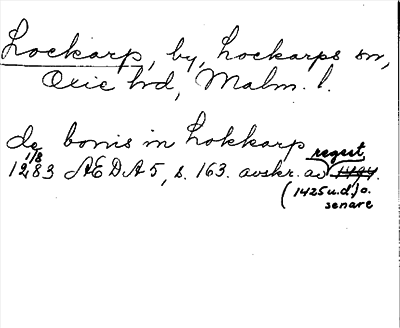 Lockarp, by, Lockarps sn,
Oxie hd, Malm. l.
de bonis in Lokkarp
1/8 regest
1283 AEDA 5, s. 163. avskr. av 1494.
(1425 u.d.) o.
senare